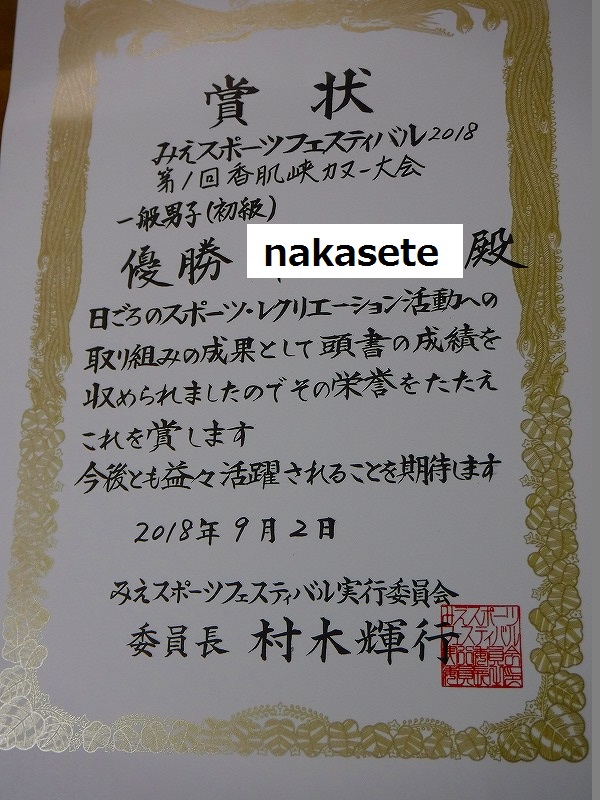 賞状
みえスポーツフェスティバル2018
第1回香肌峡カヌー大会
一般男子(初級)
優勝 nakasete 殿
日ごろのスポーツ・レクリエーション活動への
取り組みの成果として頭書の成績を
収められましたのでその栄誉をたたえ
これを賞します
今後とも益々活躍されることを期待します
2018年9月2日
みえスポーツフェスティバル実行委員会
委員長 村木輝行
みえスポーツ
フェスティバル